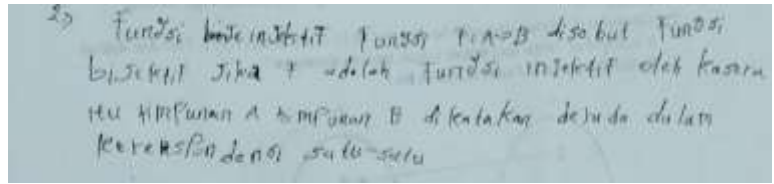 2) Fungsi injektif Fungsi F:A→B disebut Fungsi
bijektif Jika F adalah Fungsi injektif oleh karena
itu himpunan A himpunan B dikatakan berada dalam
korespondensi satu-satu